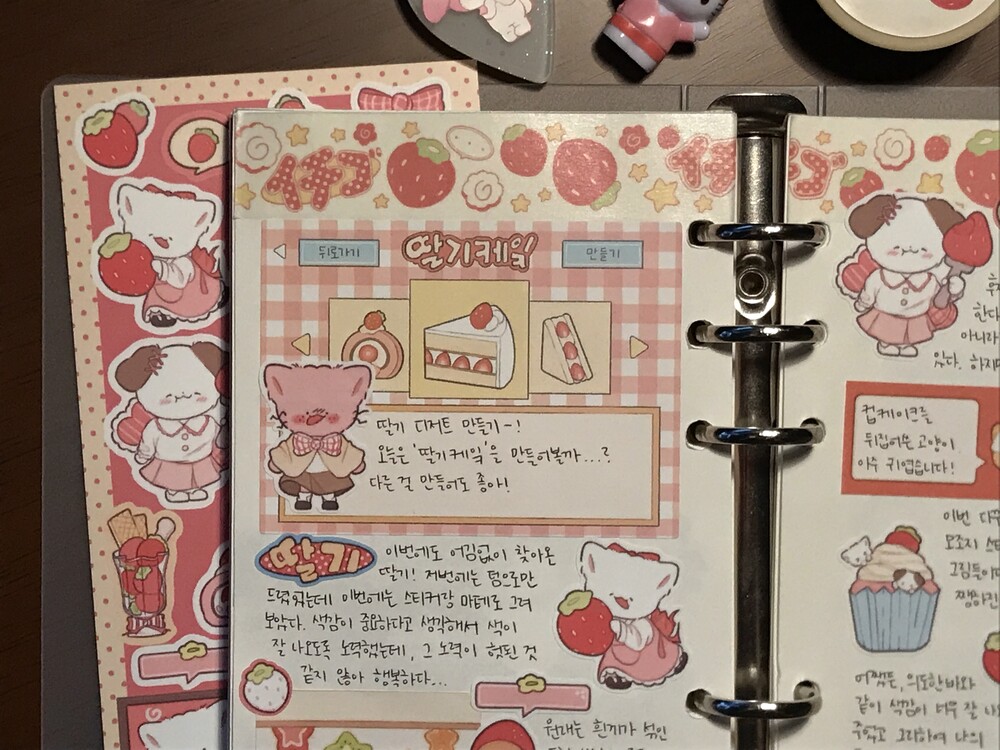 イチゴ
뒤로가기
딸기케잌
만들기
딸기 디저트 만들기~!
오늘은 '딸기케잌'을 만들어볼까...?
다른 걸 만들어도 좋아!
딸기
이번에도 어김없이 찾아온
딸기! 저번에는 덤으로만
드렸었는데 이번에는 스티커랑 마테로 그려
보았다. 색감이 중요하다고 생각해서 색이
잘 나오도록 노력했는데, 그 노력이 헛된 것
같지 않아 행복하다...
원래는 흰끼가 섞인
한다
아니라
있다. 하지만
컵케이크를
뒤집어쓴 고양이.
아주 귀엽습니다!
이번
모조지
그림들이
쨍하진
어쨌든, 의도한바와
같이 색감이 너무 잘
주었고 그리하여 나의